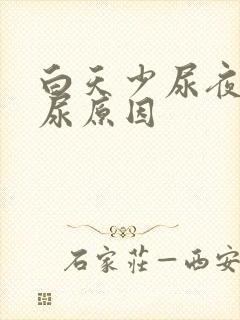 白天少尿夜
尿原因
石家莊—西安